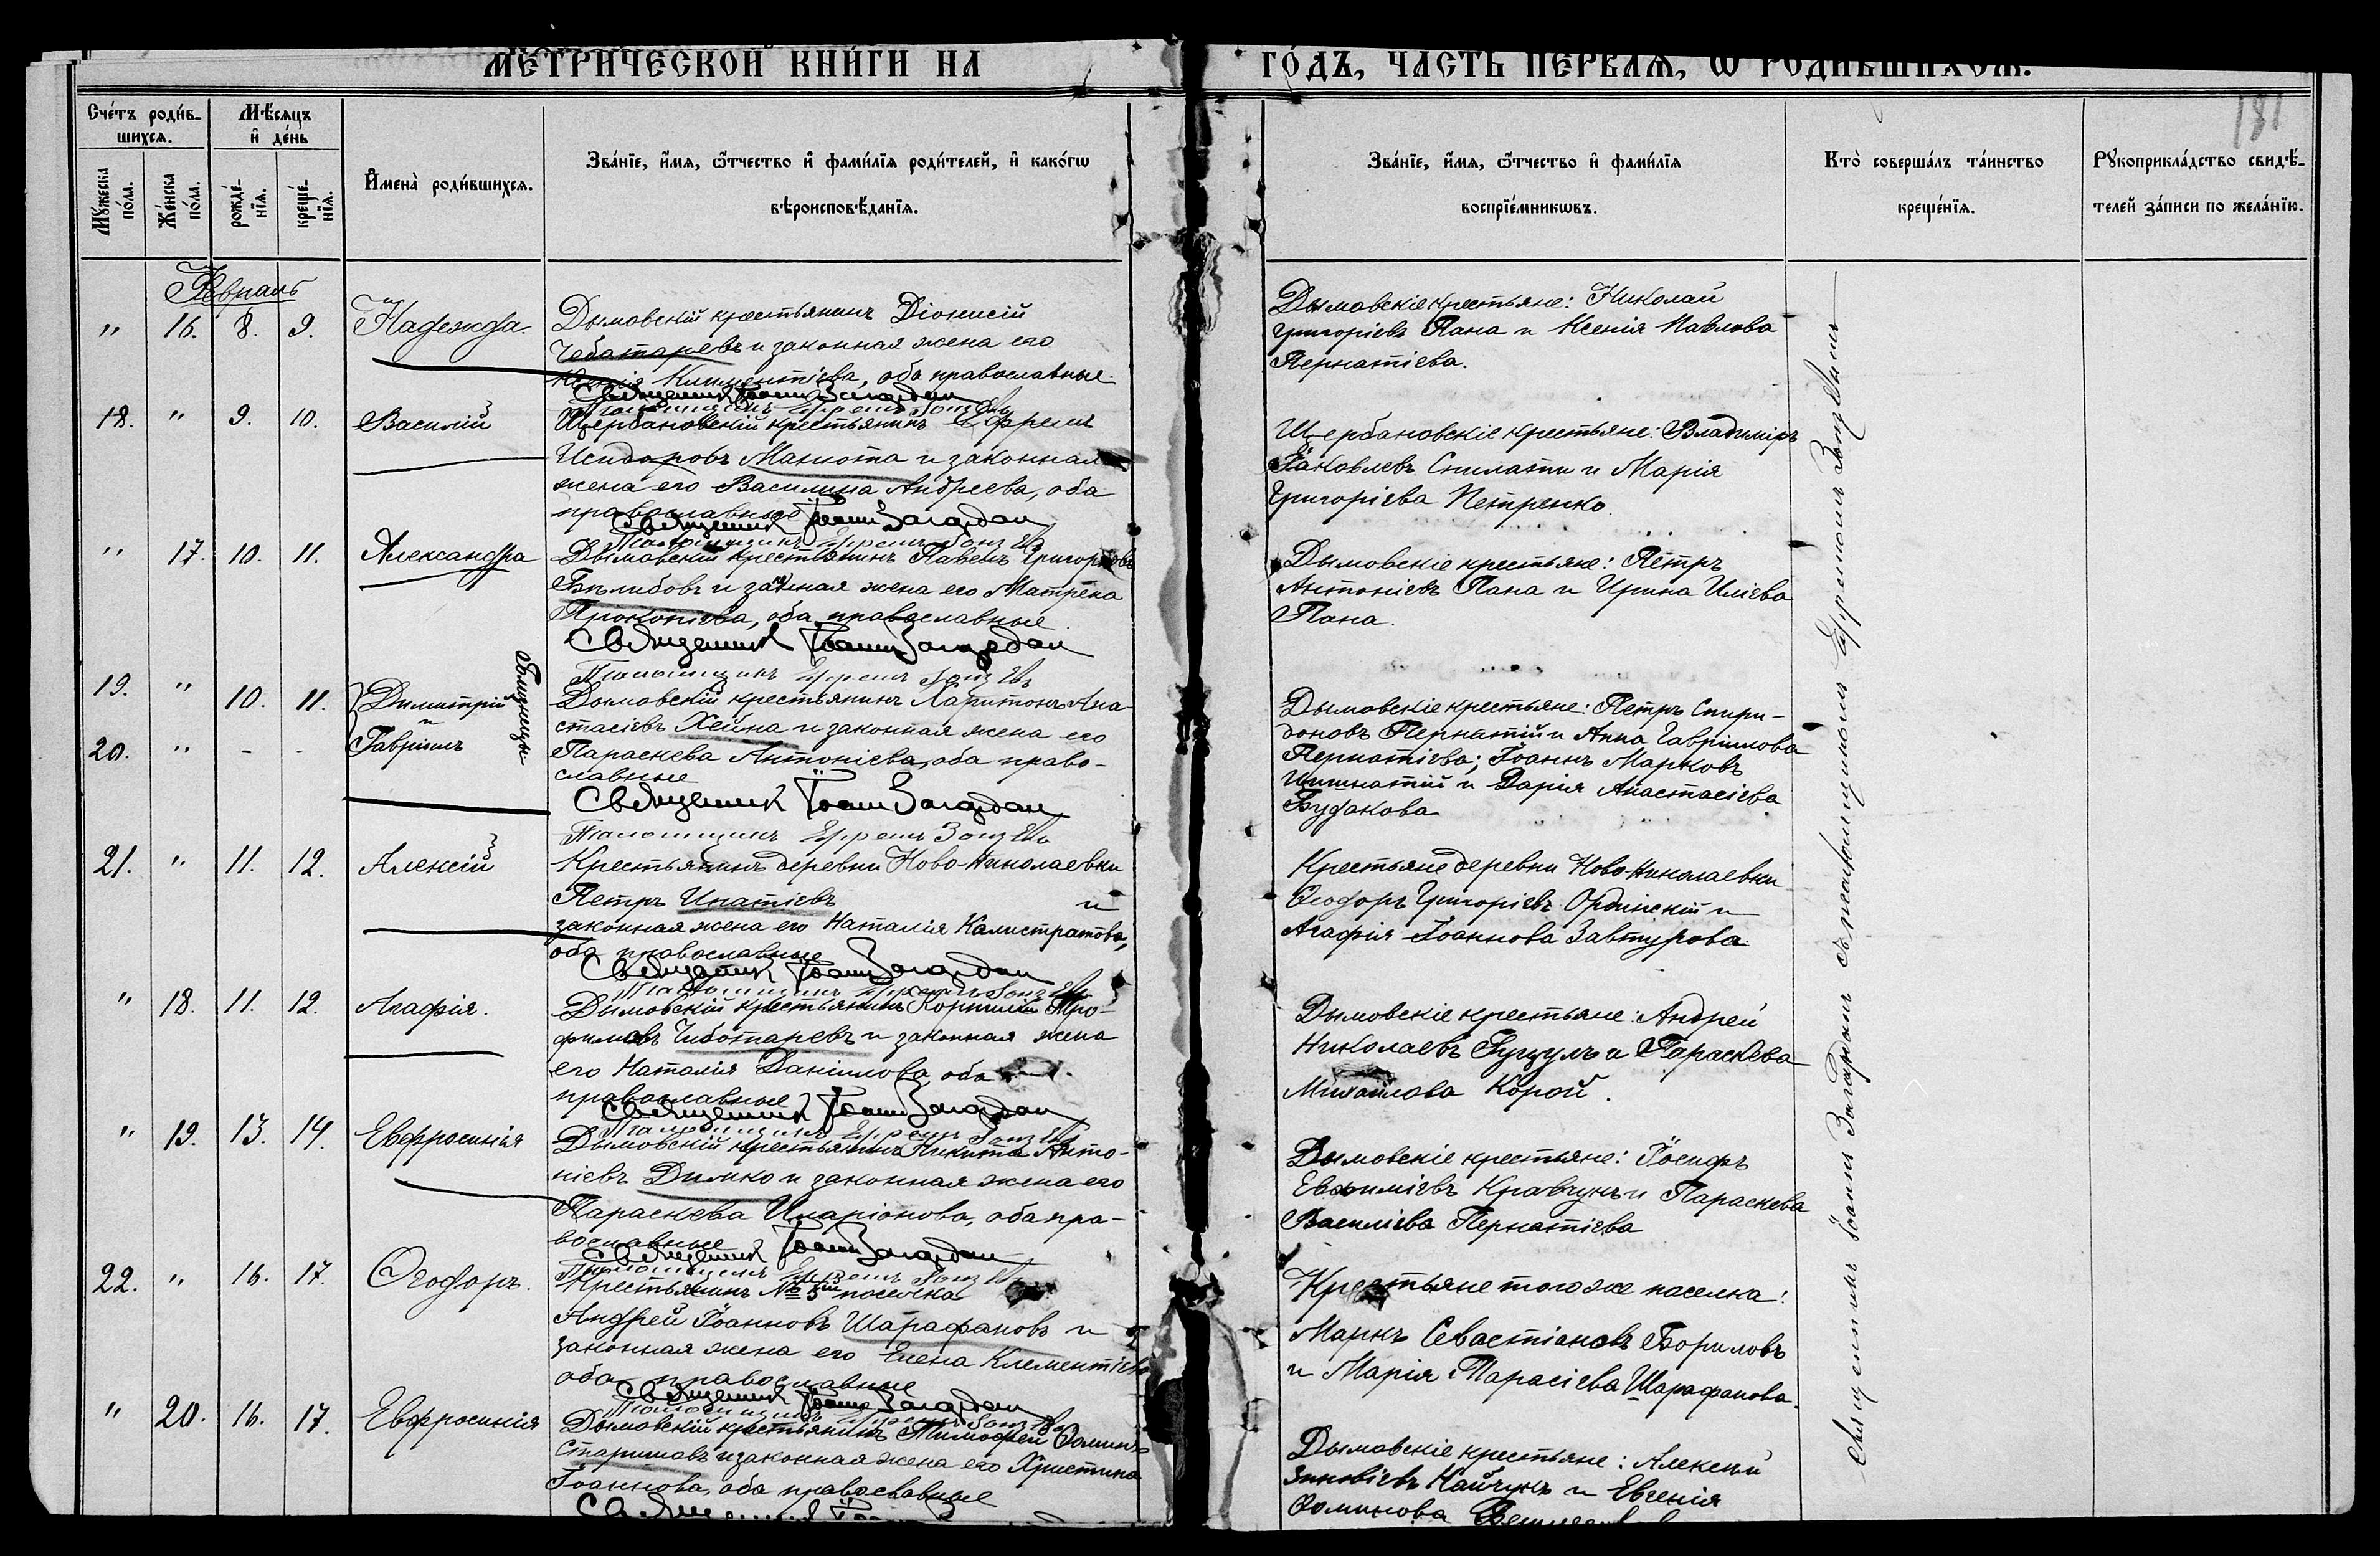 МЕТРИЧЕСКОЙ КНИ́ГИ НА
ГО́ДЪ, ЧАСТЬ ПЕРВАѦ, Ѡ РОДИ́ВШИХСѦ.
181
Сче́тъ роди́в-
шихсѧ.
Мѣ́сѧцъ
и҆ де́нь
Мꙋ́жеска по́ла.
Же́нска по́ла.
рожде́-
нїѧ.
креще́-
нїѧ.
И҆мена̀ роди́вшихсѧ.
Зва́нїе, и҆́мѧ, ѻ҆́тчество и҆ фами́лїѧ роди́телей, и҆ како́гѡ
вѣроисповѣ́данїѧ.
Зва́нїе, и҆́мѧ, ѻ҆́тчество и҆ фами́лїѧ
воспрїе́мникѡвъ.
Кто̀ соверша́лъ та́инство
креще́нїѧ.
Рꙋкоприкла́дство свидѣ́-
телей за́писи по жела́нїю.
Февраль
" 16. 8. 9. Надежда.
Дымовскій крестьянинъ Діонисій
Чебатаревъ и законная жена его
Климентіева, оба православные.
Священникъ Іоаннъ Загардан
Дымовскіе крестьяне: Николай
Григоріевъ Пана и Ксенія Павлова
Пернатіева.
18. " 9. 10. Василій
Щербановскій крестьянинъ Ефрем
Исидоровъ Манюта и законная
жена его Василина Андреева, оба
православные
Священникъ Іоаннъ Загардан
Щербановскіе крестьяне: Владимиръ
Іаковлевъ и Марія
Григоріева Петренко.
" 17. 10. 11. Александра
Дымовскій крестьянинъ Павелъ Григорьевъ
и законная жена его Матрена
Прокопіева, оба православные
Священникъ Іоаннъ Загардан
Дымовскіе крестьяне: Петръ
Антоніевъ Пана и Ирина Иліева
Пана.
19. " 10. 11. Димитрій
и
20. " - - Гавріилъ
близнецы
Дымовскій крестьянинъ Харитонъ Ана-
стасіевъ Хейна и законная жена его
Параскева Антоніева, оба право-
славные
Священникъ Іоаннъ Загардан
Дымовскіе крестьяне: Петръ Спири-
доновъ Пернатій и Анна Гавріилова
Пернатіева; Іоаннъ Марковъ
и Дарія Анастасіева
Будакова
21. " 11. 12. Алексій
Крестьянинъ деревни Ново-Николаевки
Петръ Игнатіевъ и
законная жена его Наталія Калистратова,
оба православные
Священникъ Іоаннъ Загардан
Крестьяне деревни Ново-Николаевки
Ѳеодоръ Григоріевъ Ординскій и
Агафія Іоаннова Завтурова.
" 18. 11. 12. Агафія.
Дымовскій крестьянинъ Корнилій Тро-
фимовъ Чиботаревъ и законная жена
его Наталія Даніилова, оба
православные
Священникъ Іоаннъ Загардан
Дымовскіе крестьяне: Андрей
Николаевъ Гуцулъ и Параскева
Михаилова Корой.
" 19. 13. 14. Евфросинія
Дымовскій крестьянинъ Никита Анто-
ніевъ Димко и законная жена его
Параскева Иларіонова, оба пра-
вославные
Священникъ Іоаннъ Загардан
Дымовскіе крестьяне: Іосифъ
Евфиміевъ Кравчукъ и Параскева
Василіева Пернатіева
22. " 16. 17. Ѳеодоръ.
Крестьянинъ № 5 поселка
Андрей Іоанновъ Шарафановъ и
законная жена его Елена Клементіева
оба православные
Священникъ Іоаннъ Загардан
Крестьяне того же поселка:
Маркъ Севастіановъ Бориловъ
и Марія Тарасіева Шарафанова.
" 20. 16. 17. Евфросинія
Дымовскій крестьянинъ Тимофей Ѳоминъ
Стариновъ и законная жена его Христина
Іоаннова, оба православные
Дымовскіе крестьяне: Алексій
Зиновіевъ Найчукъ и Евгенія
Ѳоминова
Священникъ Іоаннъ Загарданъ съ псаломщикомъ Ефремомъ